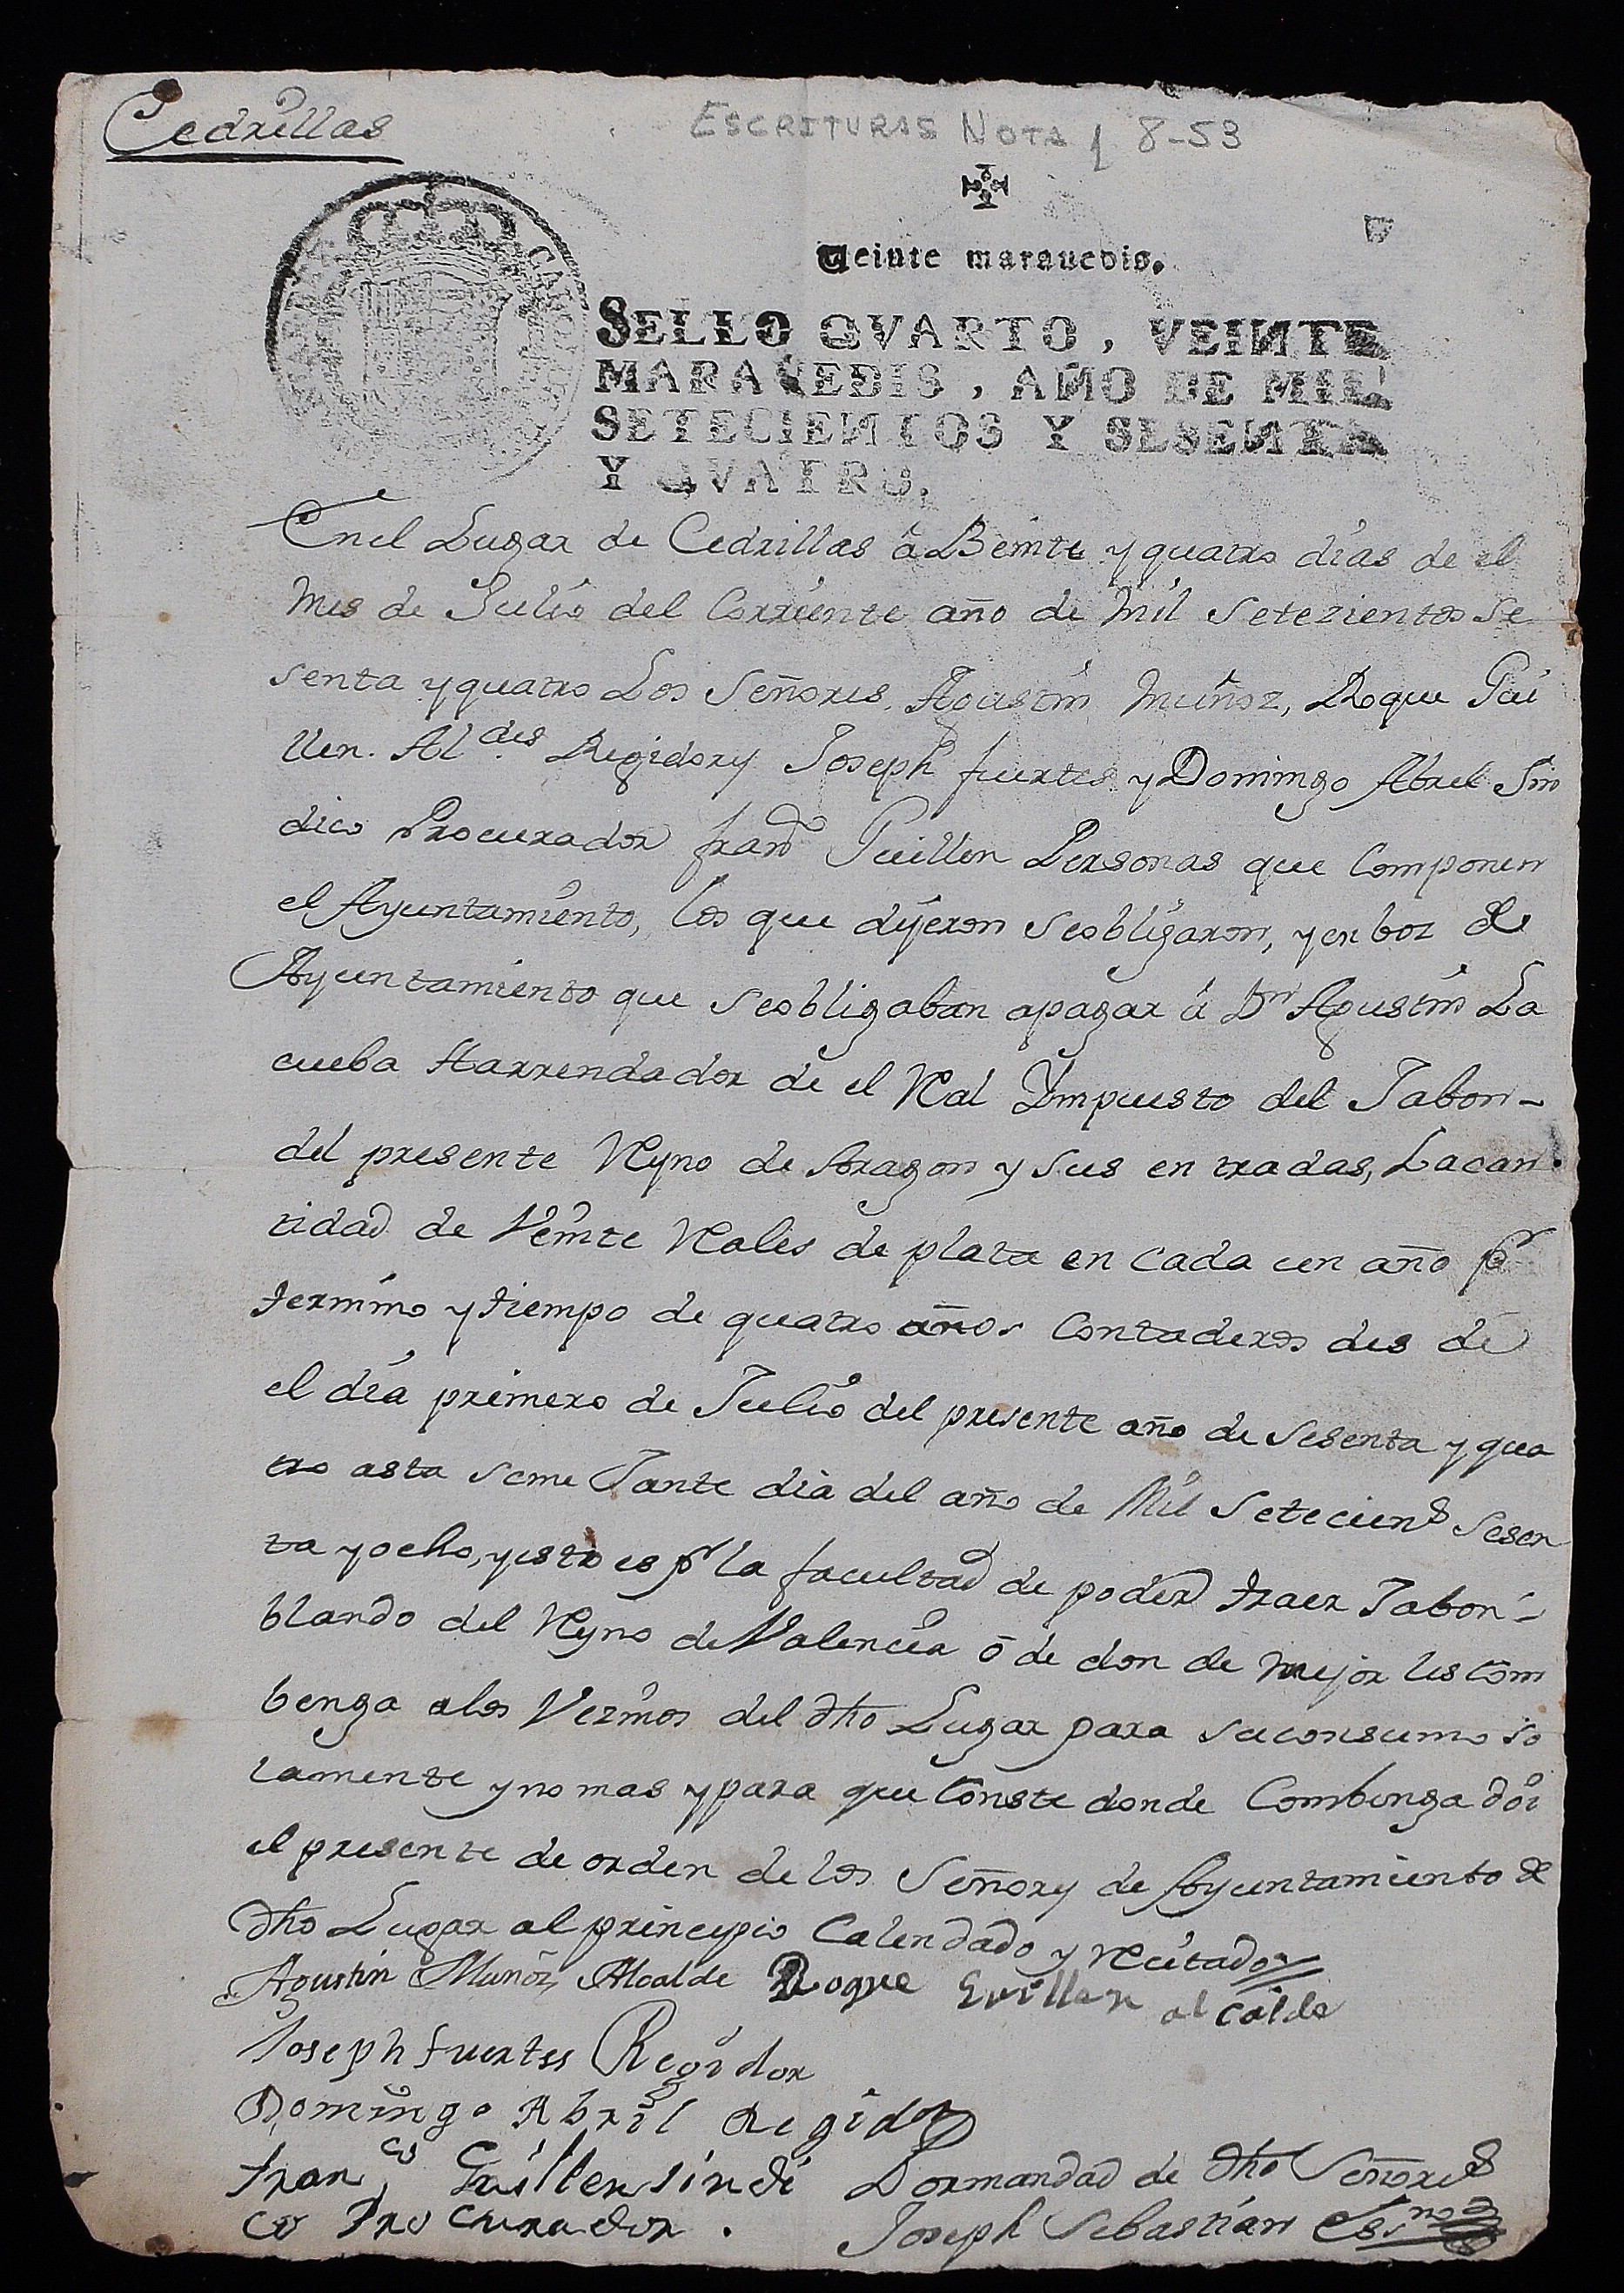 Cedrillas
ESCRITURAS NOTA 1 8-53
Veinte marauedis.
SELLO QVARTO, VEINTE
MARAVEDIS, AÑO DE MIL
SETECIENTOS Y SESENTA
Y QVATRO.
Enel Lugar de Cedrillas â Beinte y quatro dias de el
Mes de Julio del Corriente año de Mil Setezientos Se
senta y quatro Los Señores, Agustin Muñoz, Roque Gui
llen. Aldes Regidory Joseph fuertes y Domingo Abril Sin
dico Procurador franco Guillen Personas que Componen
el Ayuntamiento, los que dijeron seobligaron, y en boz de
Ayuntamiento que seobligaban apagar â Dn Agustin La
cueba Harrendador de el Real Ympuesto del Jabon-
del presente Reyno de Aragon y sus entradas, Lacan
tidad de Veinte Reales de plata en cada un año pr
termino y tiempo de quatro años Contaderos des de
el dia primero de Julio del presente año de sesenta y qua
tro asta seme Jante dia del año de Mil Setecients Sesen
ta y ocho, yesto es pr la facultad de poder traer Jabon-
blando del Reyno de Valencia ô de don de mejor les Com
benga alos Vezinos del dho Lugar para suconsumo so
lamente yno mas ypara que Conste donde Combenga doi
el presente de orden de los Señory de Ayuntamiento de
dho Lugar al principio Calendado y Recitado
Agustin Muñoz Alcalde Roque Guillen alcalde
Joseph fuertes Regidor
Domingo Abril Regidor
Franco Guillen sindi
co Procurador.
Dormandad de dhos Señores
Joseph Sebastian Essno